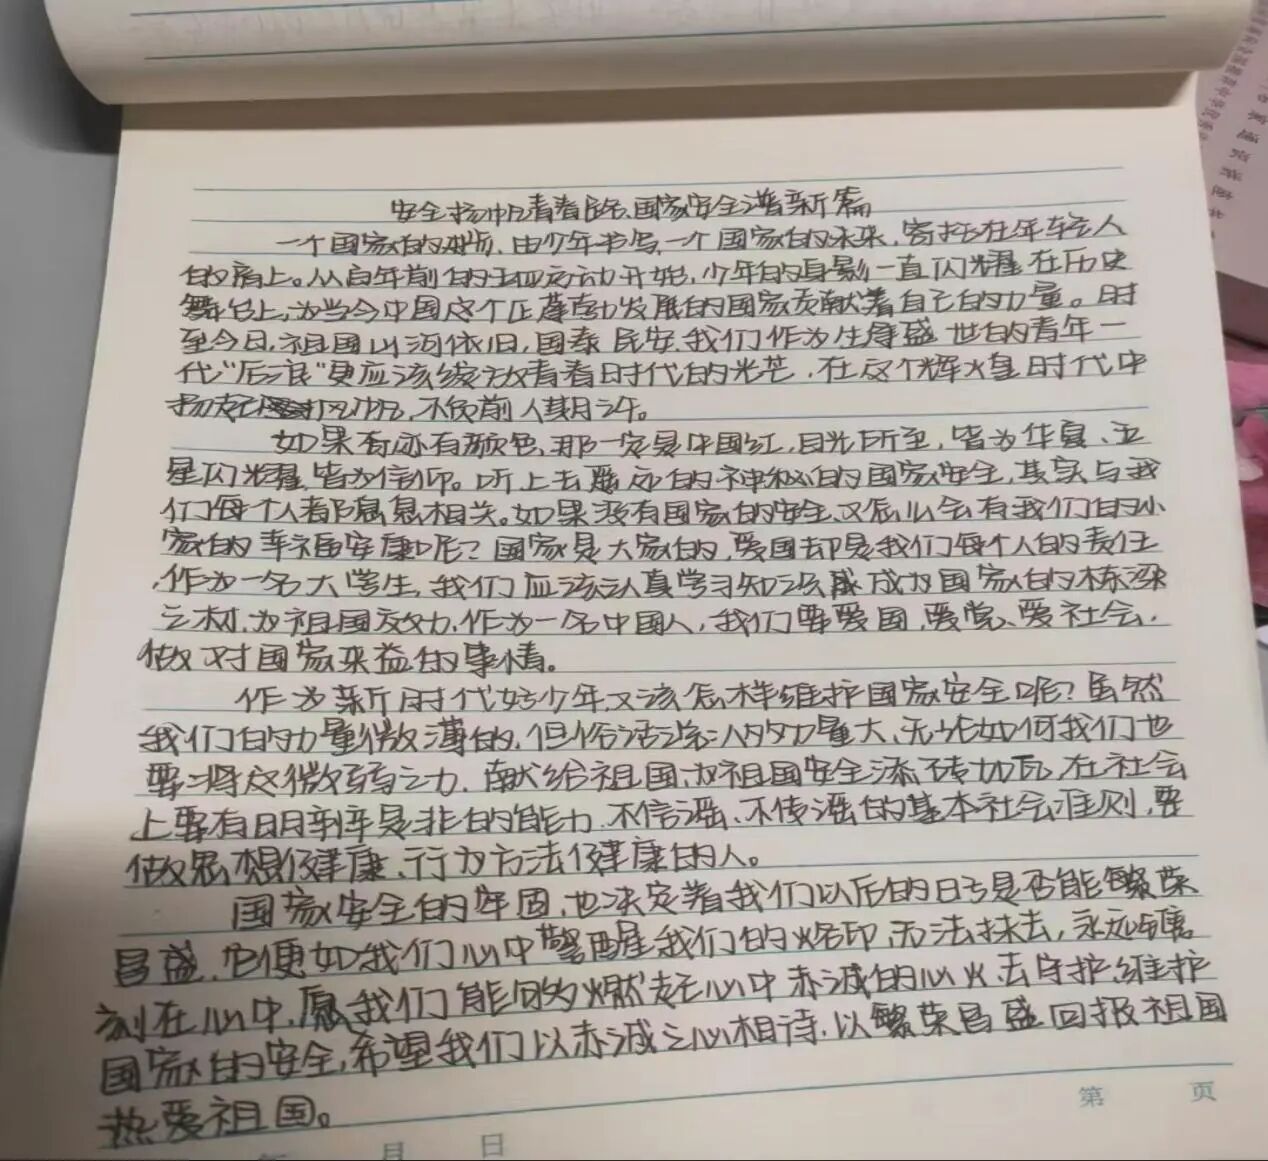 安全扬帆青春路、国家安全谱新篇
一个国家的对外、由少年书写,一个国家的未来,寄托在年轻人
的肩上。从百年前的五四运动开始,少年的身影一直闪耀在历史
舞台上,为当今中国这个正蓬勃发展的国家贡献着自己的力量。时
至今日,祖国山河依旧,国泰民安,我们作为生厚盛世的青年一
代"后浪"更应该绽放青春时代的光芒,在这个辉煌时代中
扬起风帆,不负前人期许。
如果有颜色,那一定是中国红,目光所至,皆为华夏、五
星闪耀,皆为信仰。听上去遥远的神秘的国家安全,其实与我
们每个人都息息相关。如果没有国家的安全,又怎么会有我们的小
家的幸福安康呢?国家是大家的,爱国却是我们每个人的责任
,作为一名大学生,我们应该认真学习知识成为国家的栋梁
之材,为祖国效力,作为一名中国人,我们要爱国,爱党、爱社会,
做对国家来益的事情。
作为新时代好少年又该怎样维护国家安全呢?虽然
我们的力量微薄的,但俗话说:人的力量大,无论如何我们也
要将这微弱之力,献给祖国,为祖国安全添砖加瓦,在社会
上要有明判是非的能力,不信谣、不传谣的基本社会准则,要
做思想健康、行为方法健康的人。
国家安全的牢固,也决定着我们以后的日子是否能繁荣
昌盛,它便如我们心中警醒我们的烙印,无法抹去,永远
刻在心中,愿我们能够燃起心中赤诚的心火去守护,维护
国家的安全,希望我们以赤诚之心相待,以繁荣昌盛回报祖国
热爱祖国。
第 页
年 月 日